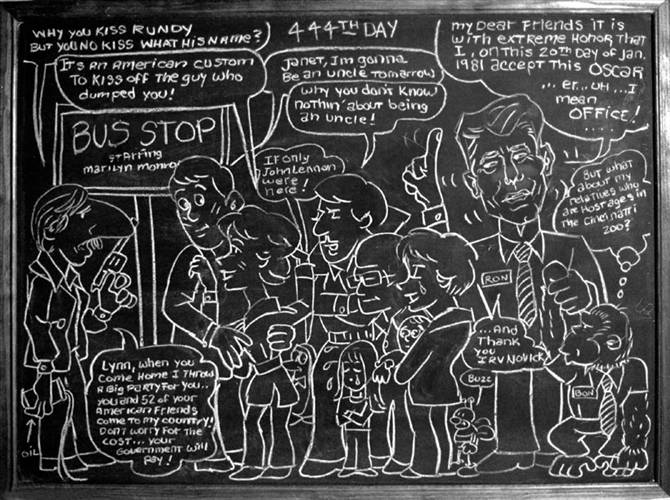 WHY YOU KISS RUNDY
BUT YOU NO KISS WHAT HIS NAME?
IT'S AN AMERICAN CUSTOM
TO KISS OFF THE GUY WHO
DUMPED YOU!
BUS STOP
STARRING
MARILYN MONRO
444TH DAY
JANET, I'M GONNA
BE AN UNCLE TOMORROW
WHY YOU DON'T KNOW
NOTHIN' ABOUT BEING
AN UNCLE!
IF ONLY
JOHN LENNON
WERE
HERE!
MY DEAR FRIENDS IT IS
WITH EXTREME HONOR THAT
I, ON THIS 20TH DAY OF JAN.
1981 ACCEPT THIS OSCAR
... ER... UH... I
MEAN
OFFICE!
....
BUT WHAT
ABOUT MY
RELATIVES WHO
ARE HOSTAGES IN
THE CINCINATTI
ZOO?
RON
...AND
THANK
YOU
IRV NOVICK!
BUZZ
BON
LYNN, WHEN YOU
COME HOME I THROW
A BIG PARTY FOR YOU..
YOU AND 52 OF YOUR
AMERICAN FRIENDS
COME TO MY COUNTRY!
DON'T WORRY FOR THE
COST... YOUR
GOVERNMENT WILL
PAY!
OIL